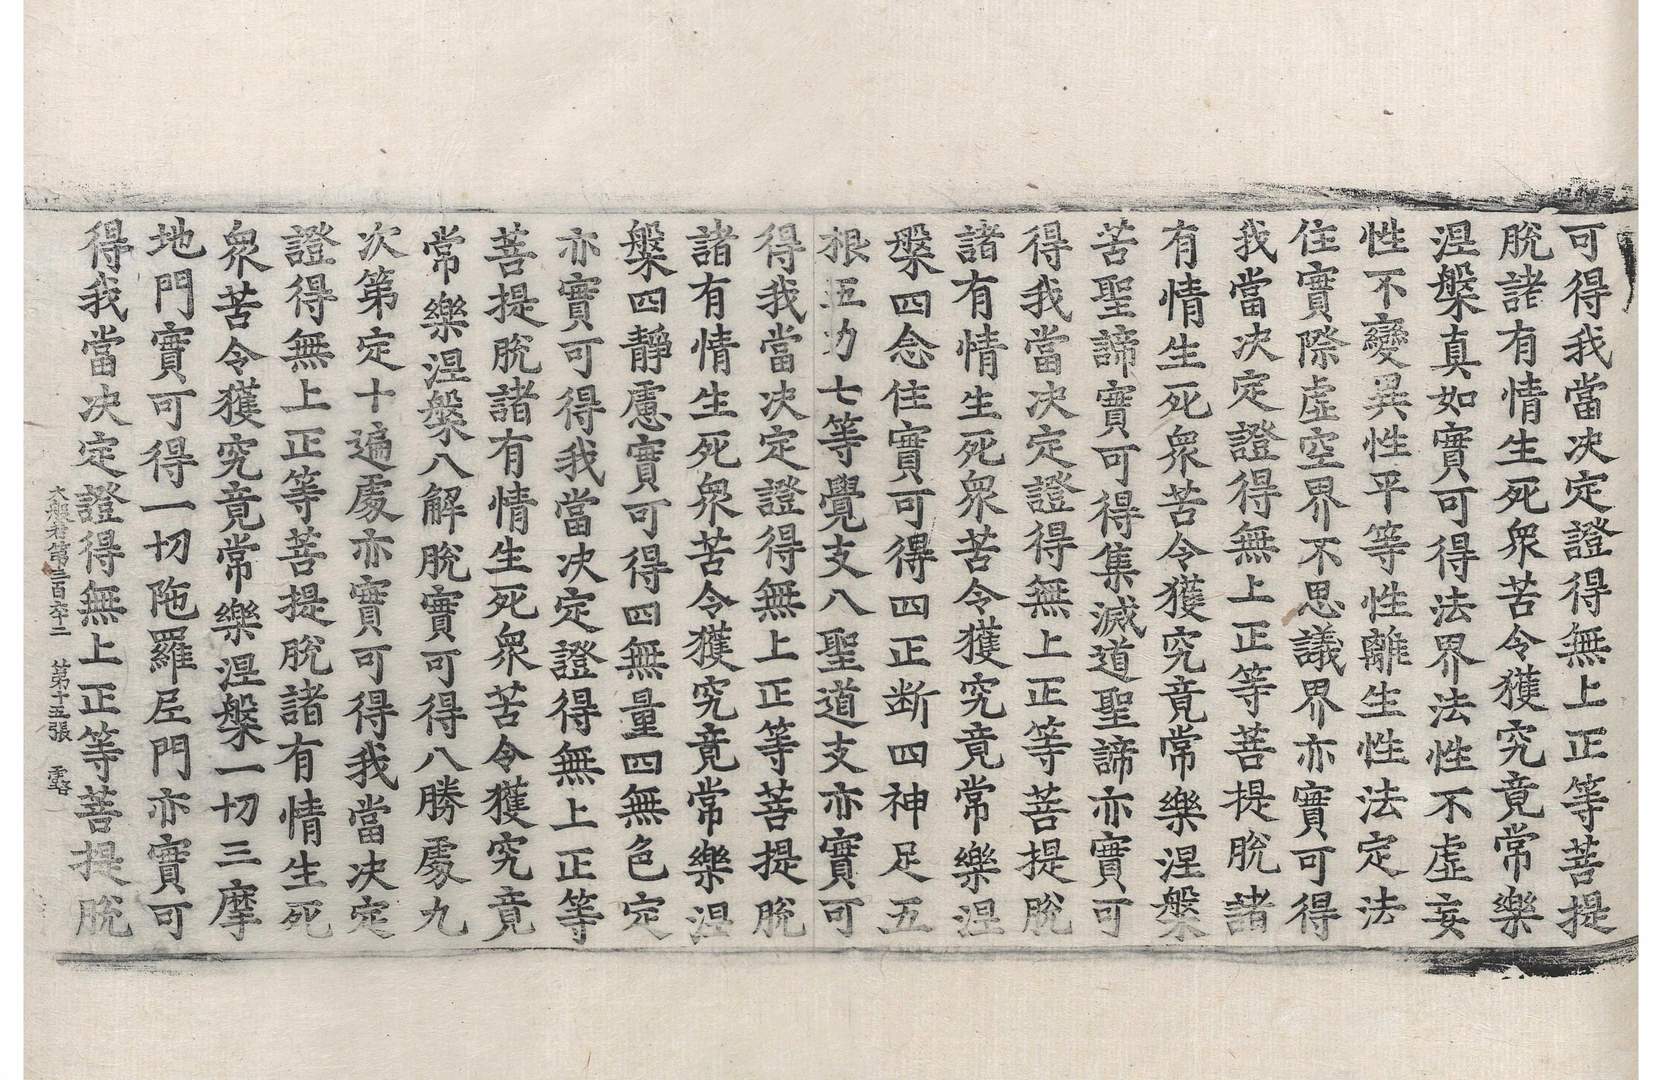 可得我當决定證得無上正等菩提
脫諸有情生死衆苦令獲究竟常樂
涅槃真如實可得法界法性不虛妄
性不變異性平等性離生性法定法
住實際虛空界不思議界亦實可得
我當决定證得無上正等菩提脫諸
有情生死衆苦令獲究竟常樂涅槃
苦聖諦實可得集滅道聖諦亦實可
得我當决定證得無上正等菩提脫
諸有情生死衆苦令獲究竟常樂涅
槃四念住實可得四正断四神足五
根五力七等覺支八聖道支亦實可
得我當决定證得無上正等菩提脫
諸有情生死衆苦令獲究竟常樂涅
槃四靜慮實可得四無量四無色定
亦實可得我當决定證得無上正等
菩提脫諸有情生死衆苦令獲究竟
常樂涅槃八解脫實可得八勝處九
次第定十遍處亦實可得我當决定
證得無上正等菩提脫諸有情生死
衆苦令獲究竟常樂涅槃一切三摩
地門實可得一切陁羅尼門亦實可
得我當决定證得無上正等菩提脫
大般若第三百六十二 第十五張